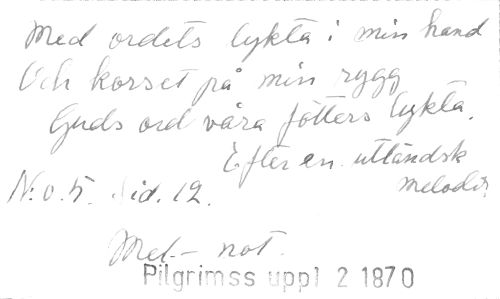 Med ordets lykta i min hand
Och korset på min rygg
Guds ord våra fötters lykta.
Efter en utländsk
melodi.
N:o 5. Sid. 12.
Mel.- not.
Pilgrimss uppl 2 1870